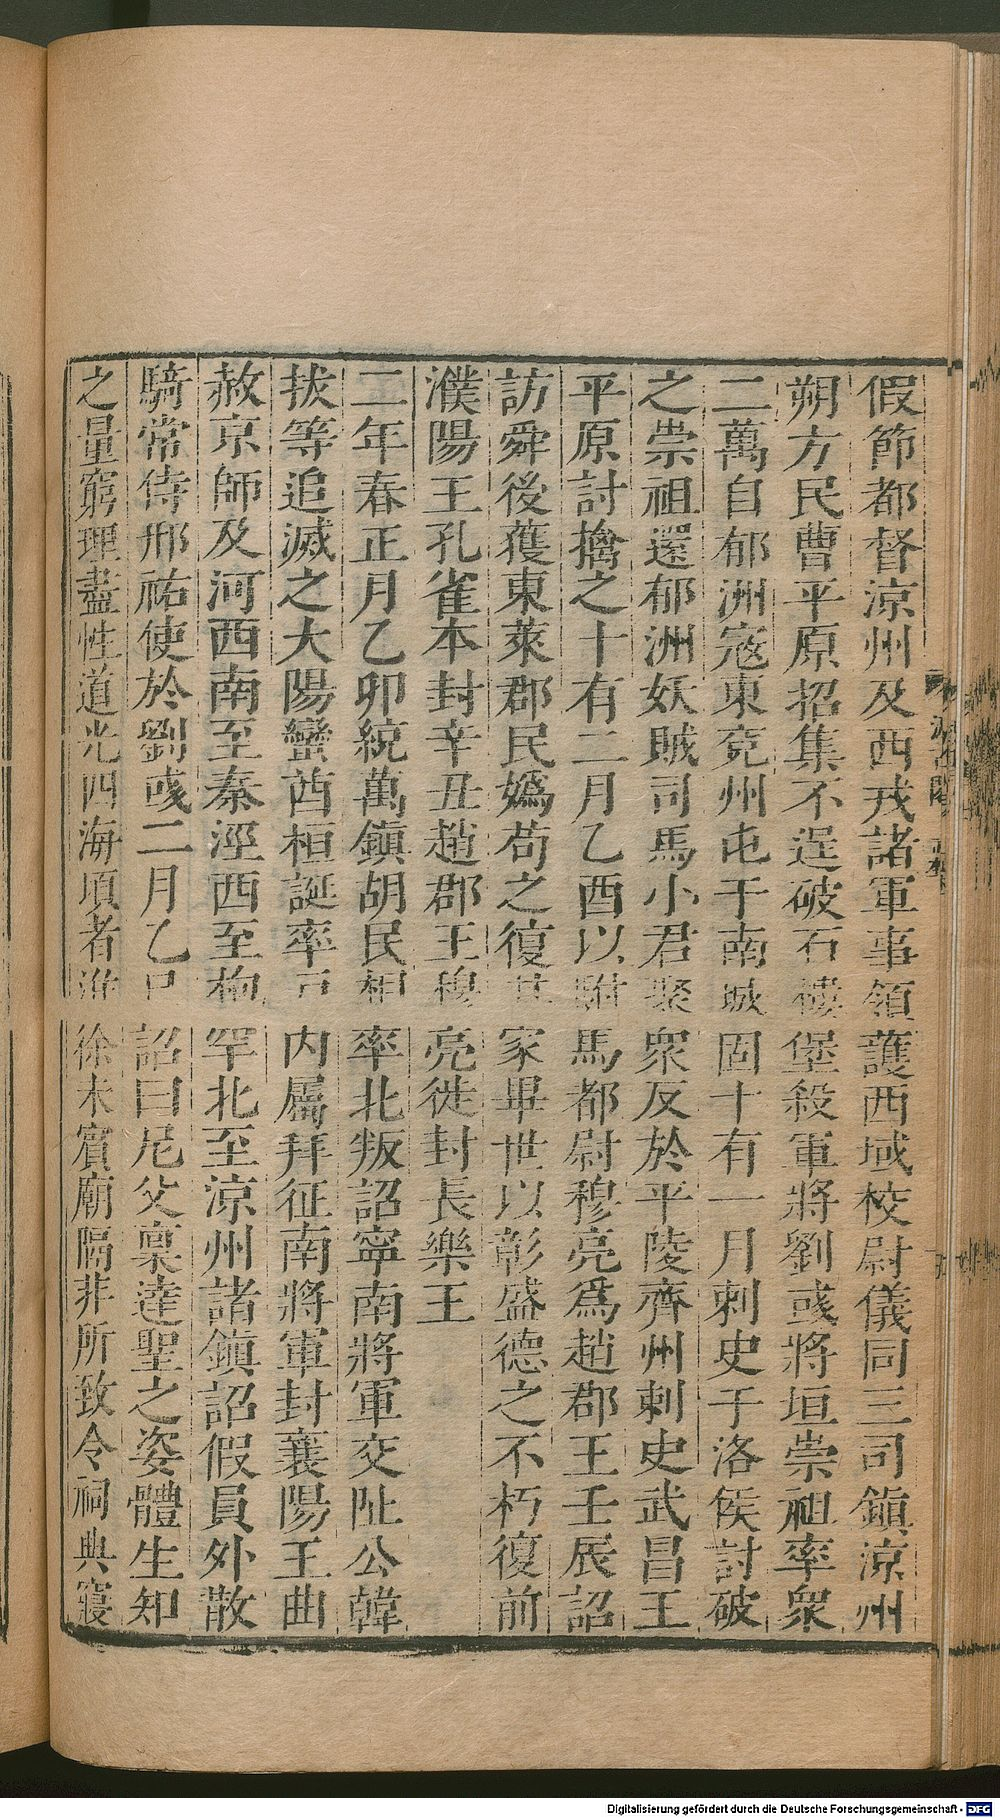 假節都督涼州及西戎諸軍事領護西域校尉儀同三司鎮涼州
朔方民曹平原招集不逞破石樓堡殺軍將劉彧將垣崇祖率衆
二萬自郁洲寇東兗州屯于南城固十有一月刺史于洛侯討破
之崇祖還郁洲妖賊司馬小君聚衆反於平陵齊州刺史武昌王
平原討擒之十有二月乙酉以駙馬都尉穆亮爲趙郡王壬辰詔
訪舜後獲東萊郡民媯苟之復其家畢世以彰盛德之不朽復前
濮陽王孔雀本封辛丑趙郡王穆亮徙封長樂王
二年春正月乙卯統萬鎮胡民相率北叛詔寧南將軍交阯公韓
拔等追滅之大陽蠻酋桓誕率戶內屬拜征南將軍封襄陽王曲
赦京師及河西南至秦涇西至枹罕北至涼州諸鎮詔假員外散
騎常侍邢祐使於劉彧二月乙巳詔曰尼父稟達聖之姿體生知
之量窮理盡性道光四海頃者淮徐未賓廟隔非所致令祠典寢
Digitalisierung gefördert durch die Deutsche Forschungsgemeinschaft - DFG